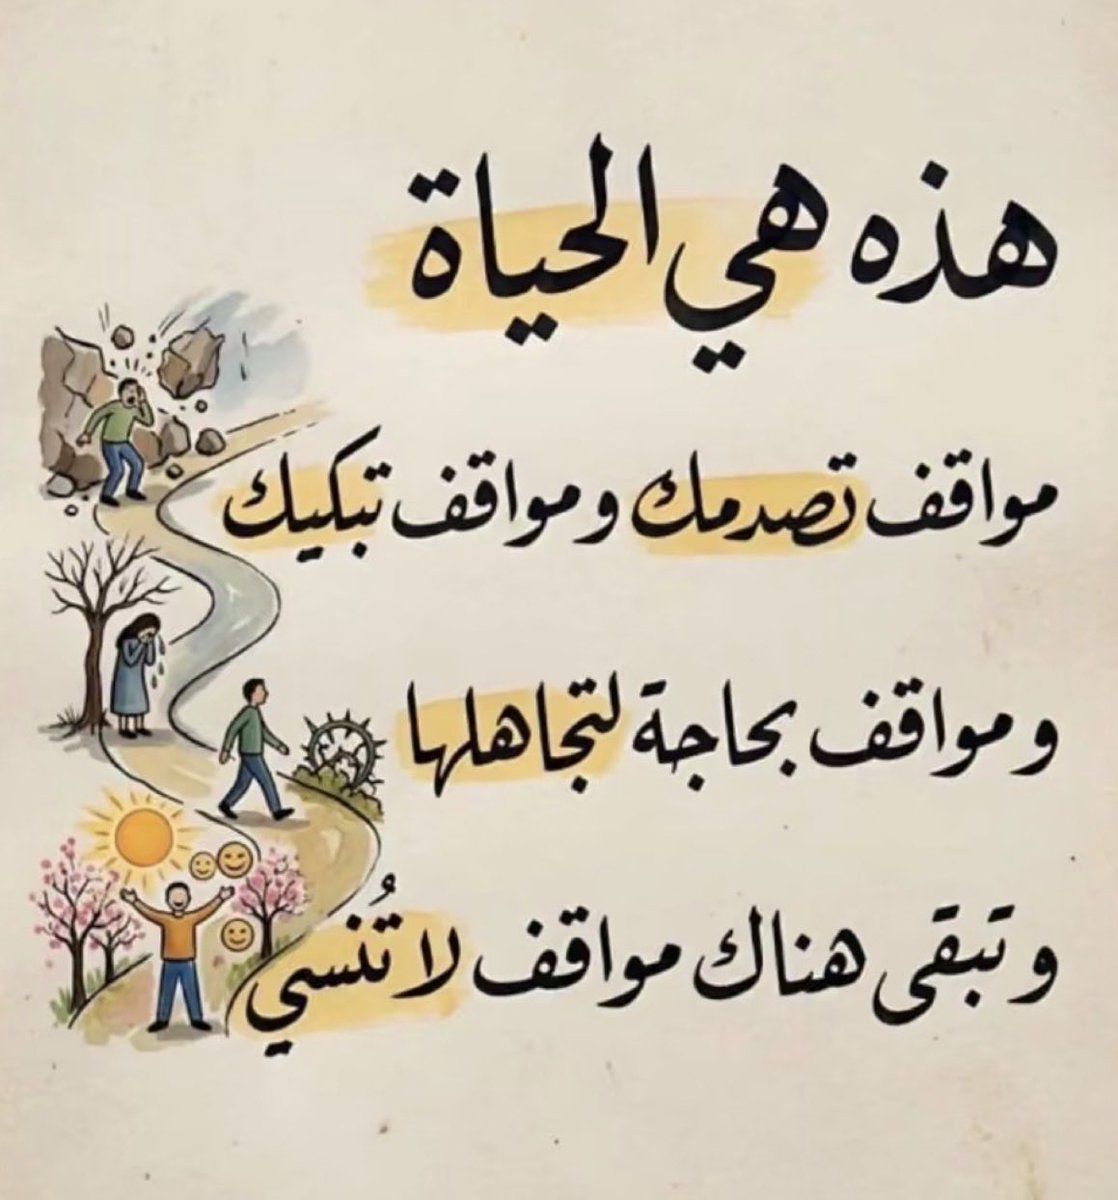 هذه هي الحياة
مواقف تصدمك ومواقف تبكيك
ومواقف بحاجة لتجاهلها
وتبقى هناك مواقف لا تُنسي